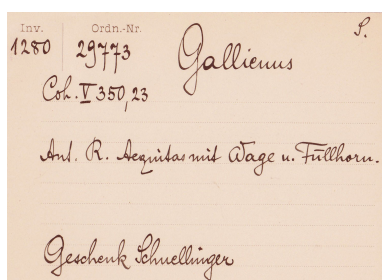 Inv. Ordn.-Nr. S.
1280 29773 Gallienus
Coh. V 350, 23
Ant. R. Aequitas mit Wage u. Füllhorn.
Geschenk Schnellinger